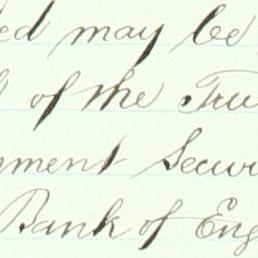 ed may be
of the Tru
nment Secur
Bank of Eng